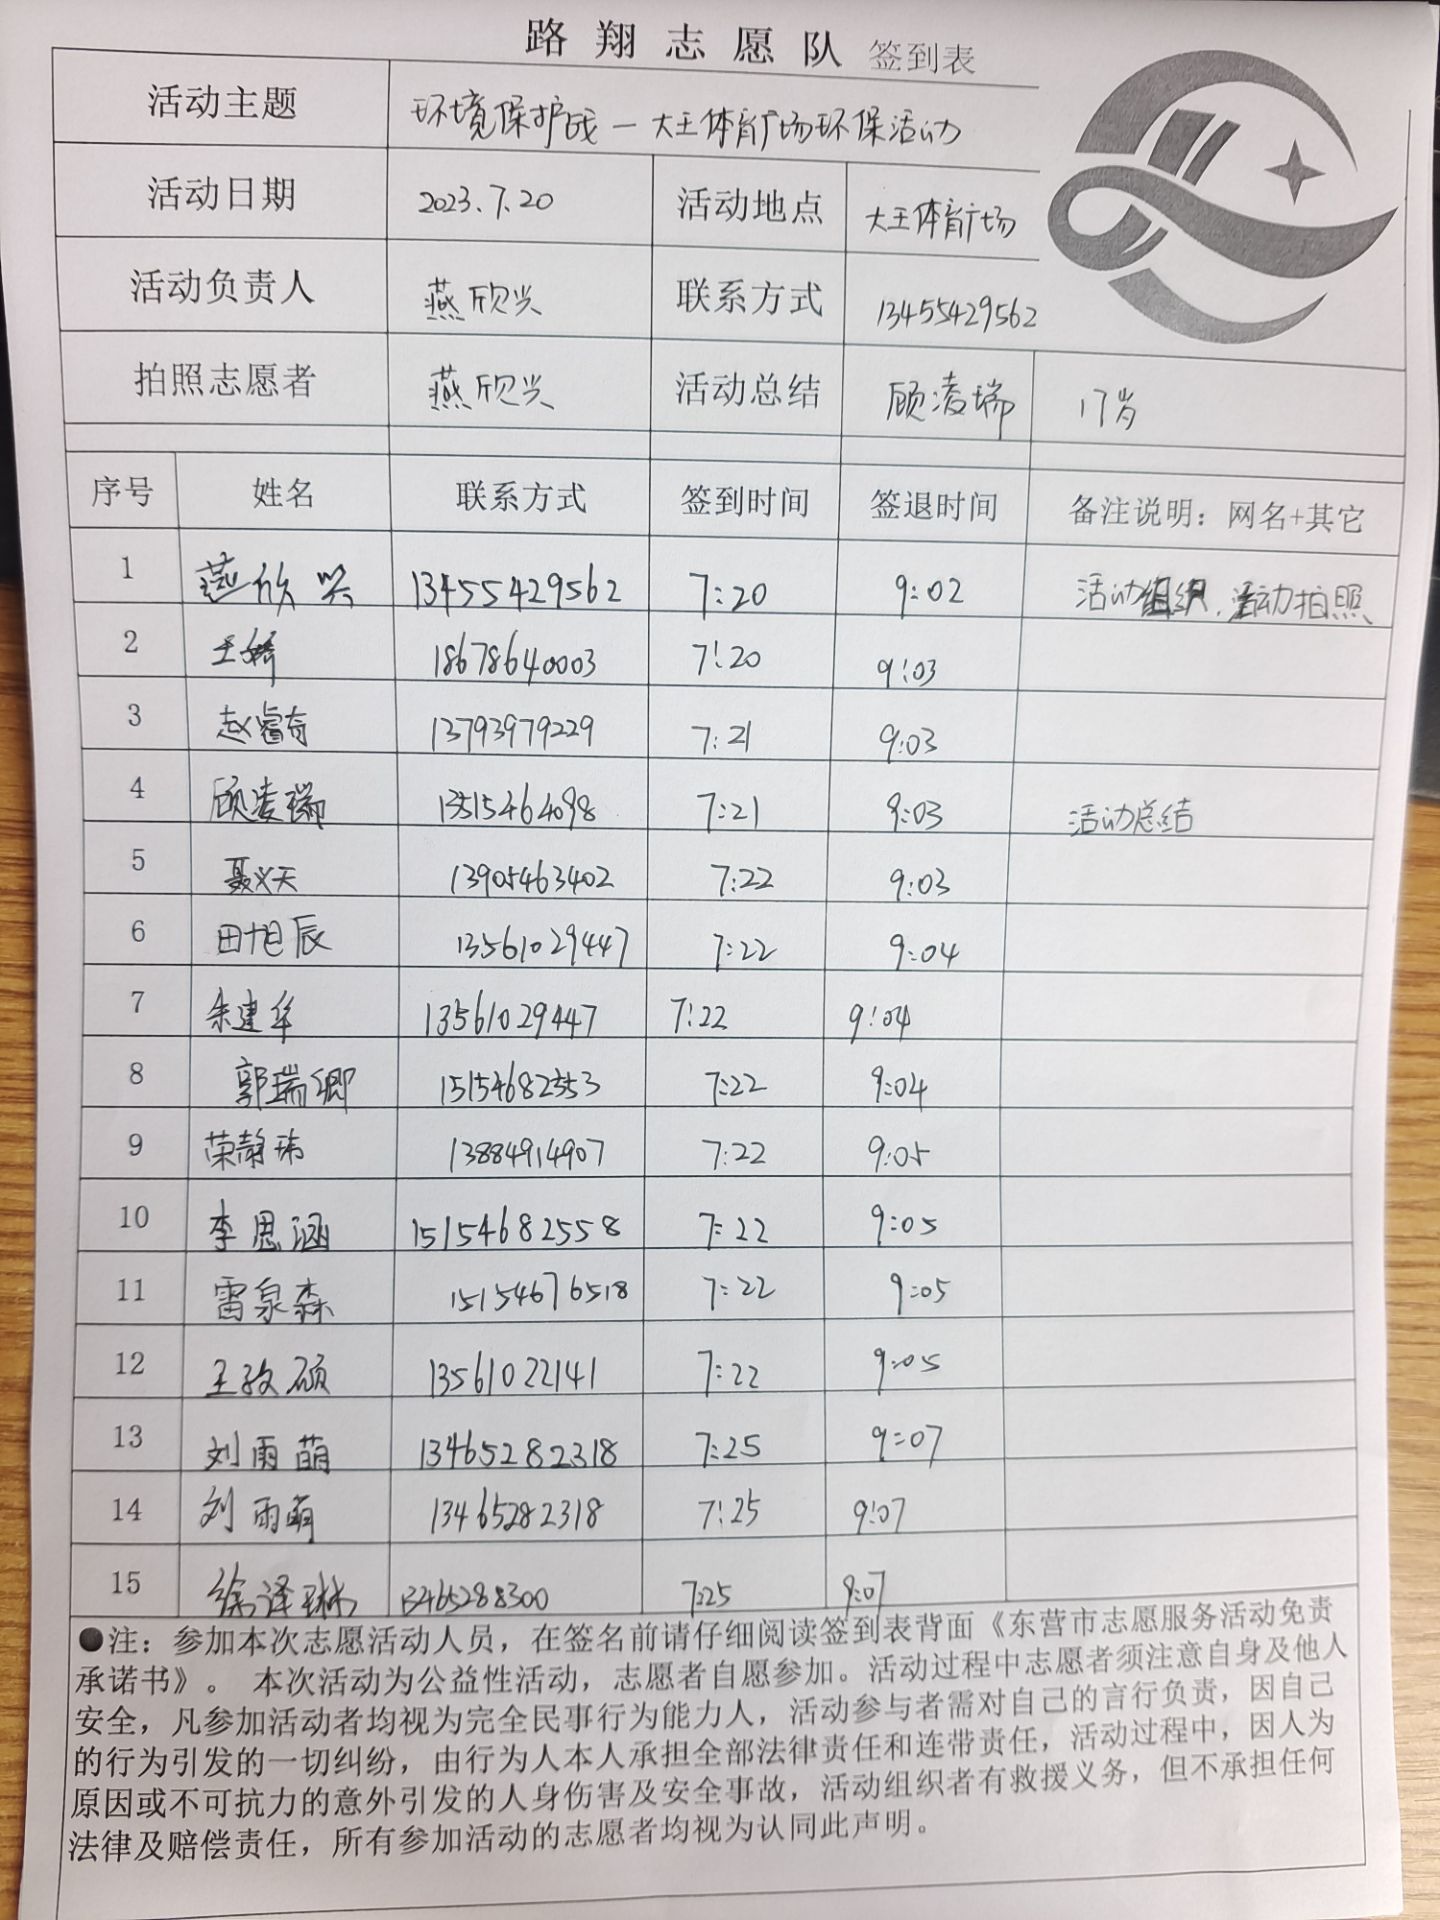 路翔志愿队 签到表
活动主题 环境保护战一大王体育广场环保活动
活动日期 2023.7.20 活动地点 大王体育广场
活动负责人 燕欣兴 联系方式 13455429562
拍照志愿者 燕欣兴 活动总结 顾凌瑞 17岁
序号 姓名 联系方式 签到时间 签退时间 备注说明：网名+其它
1 燕欣兴 13455429562 7:20 9:02 活动组织，活动拍照
2 王娇 18678640003 7:20 9:03
3 赵睿奇 13793979229 7:21 9:03
4 顾凌瑞 13515464098 7:21 9:03 活动总结
5 聂义天 13905463402 7:22 9:03
6 田旭辰 13561029447 7:22 9:04
7 朱建华 13561029447 7:22 9:04
8 郭瑞卿 15154682553 7:22 9:04
9 荣静玮 13884914907 7:22 9:05
10 李思涵 15154682558 7:22 9:05
11 雷泉森 15154676518 7:22 9:05
12 王孜硕 13561022141 7:22 9:05
13 刘雨萌 13465282318 7:25 9:07
14 刘雨萌 13465282318 7:25 9:07
15 徐泽琳 13465288300 7:25 9:07
●注：参加本次志愿活动人员，在签名前请仔细阅读签到表背面《东营市志愿服务活动免责
承诺书》。 本次活动为公益性活动，志愿者自愿参加。活动过程中志愿者须注意自身及他人
安全，凡参加活动者均视为完全民事行为能力人，活动参与者需对自己的言行负责，因自己
的行为引发的一切纠纷，由行为人本人承担全部法律责任和连带责任，活动过程中，因人为
原因或不可抗力的意外引发的人身伤害及安全事故，活动组织者有救援义务，但不承担任何
法律及赔偿责任，所有参加活动的志愿者均视为认同此声明。